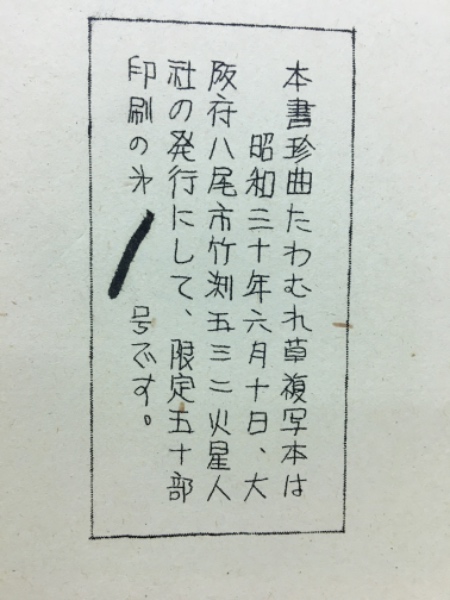 本書珍曲たわむれ草複写本は
昭和三十年六月十日、大
阪府八尾市竹渕五三二火星人
社の発行にして、限定五十部
印刷の㐧 1 号です。